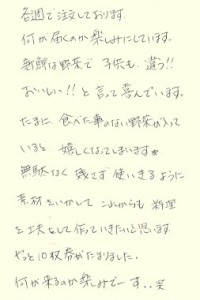 各週で注文しております。
何が届くのか楽しみにしています。
新鮮な野菜で 子供も、違う!!
おいしい!! と言って喜んでいます。
たまに 食べた事のない野菜が入って
いると 嬉しくなってしまいます
無駄なく 残さず 使いきるように
素材をいかして これからも 料理
を工夫して作っていきたいと思います。
やっと10枚券がたまりました。
何が来るのか楽しみでーす..笑